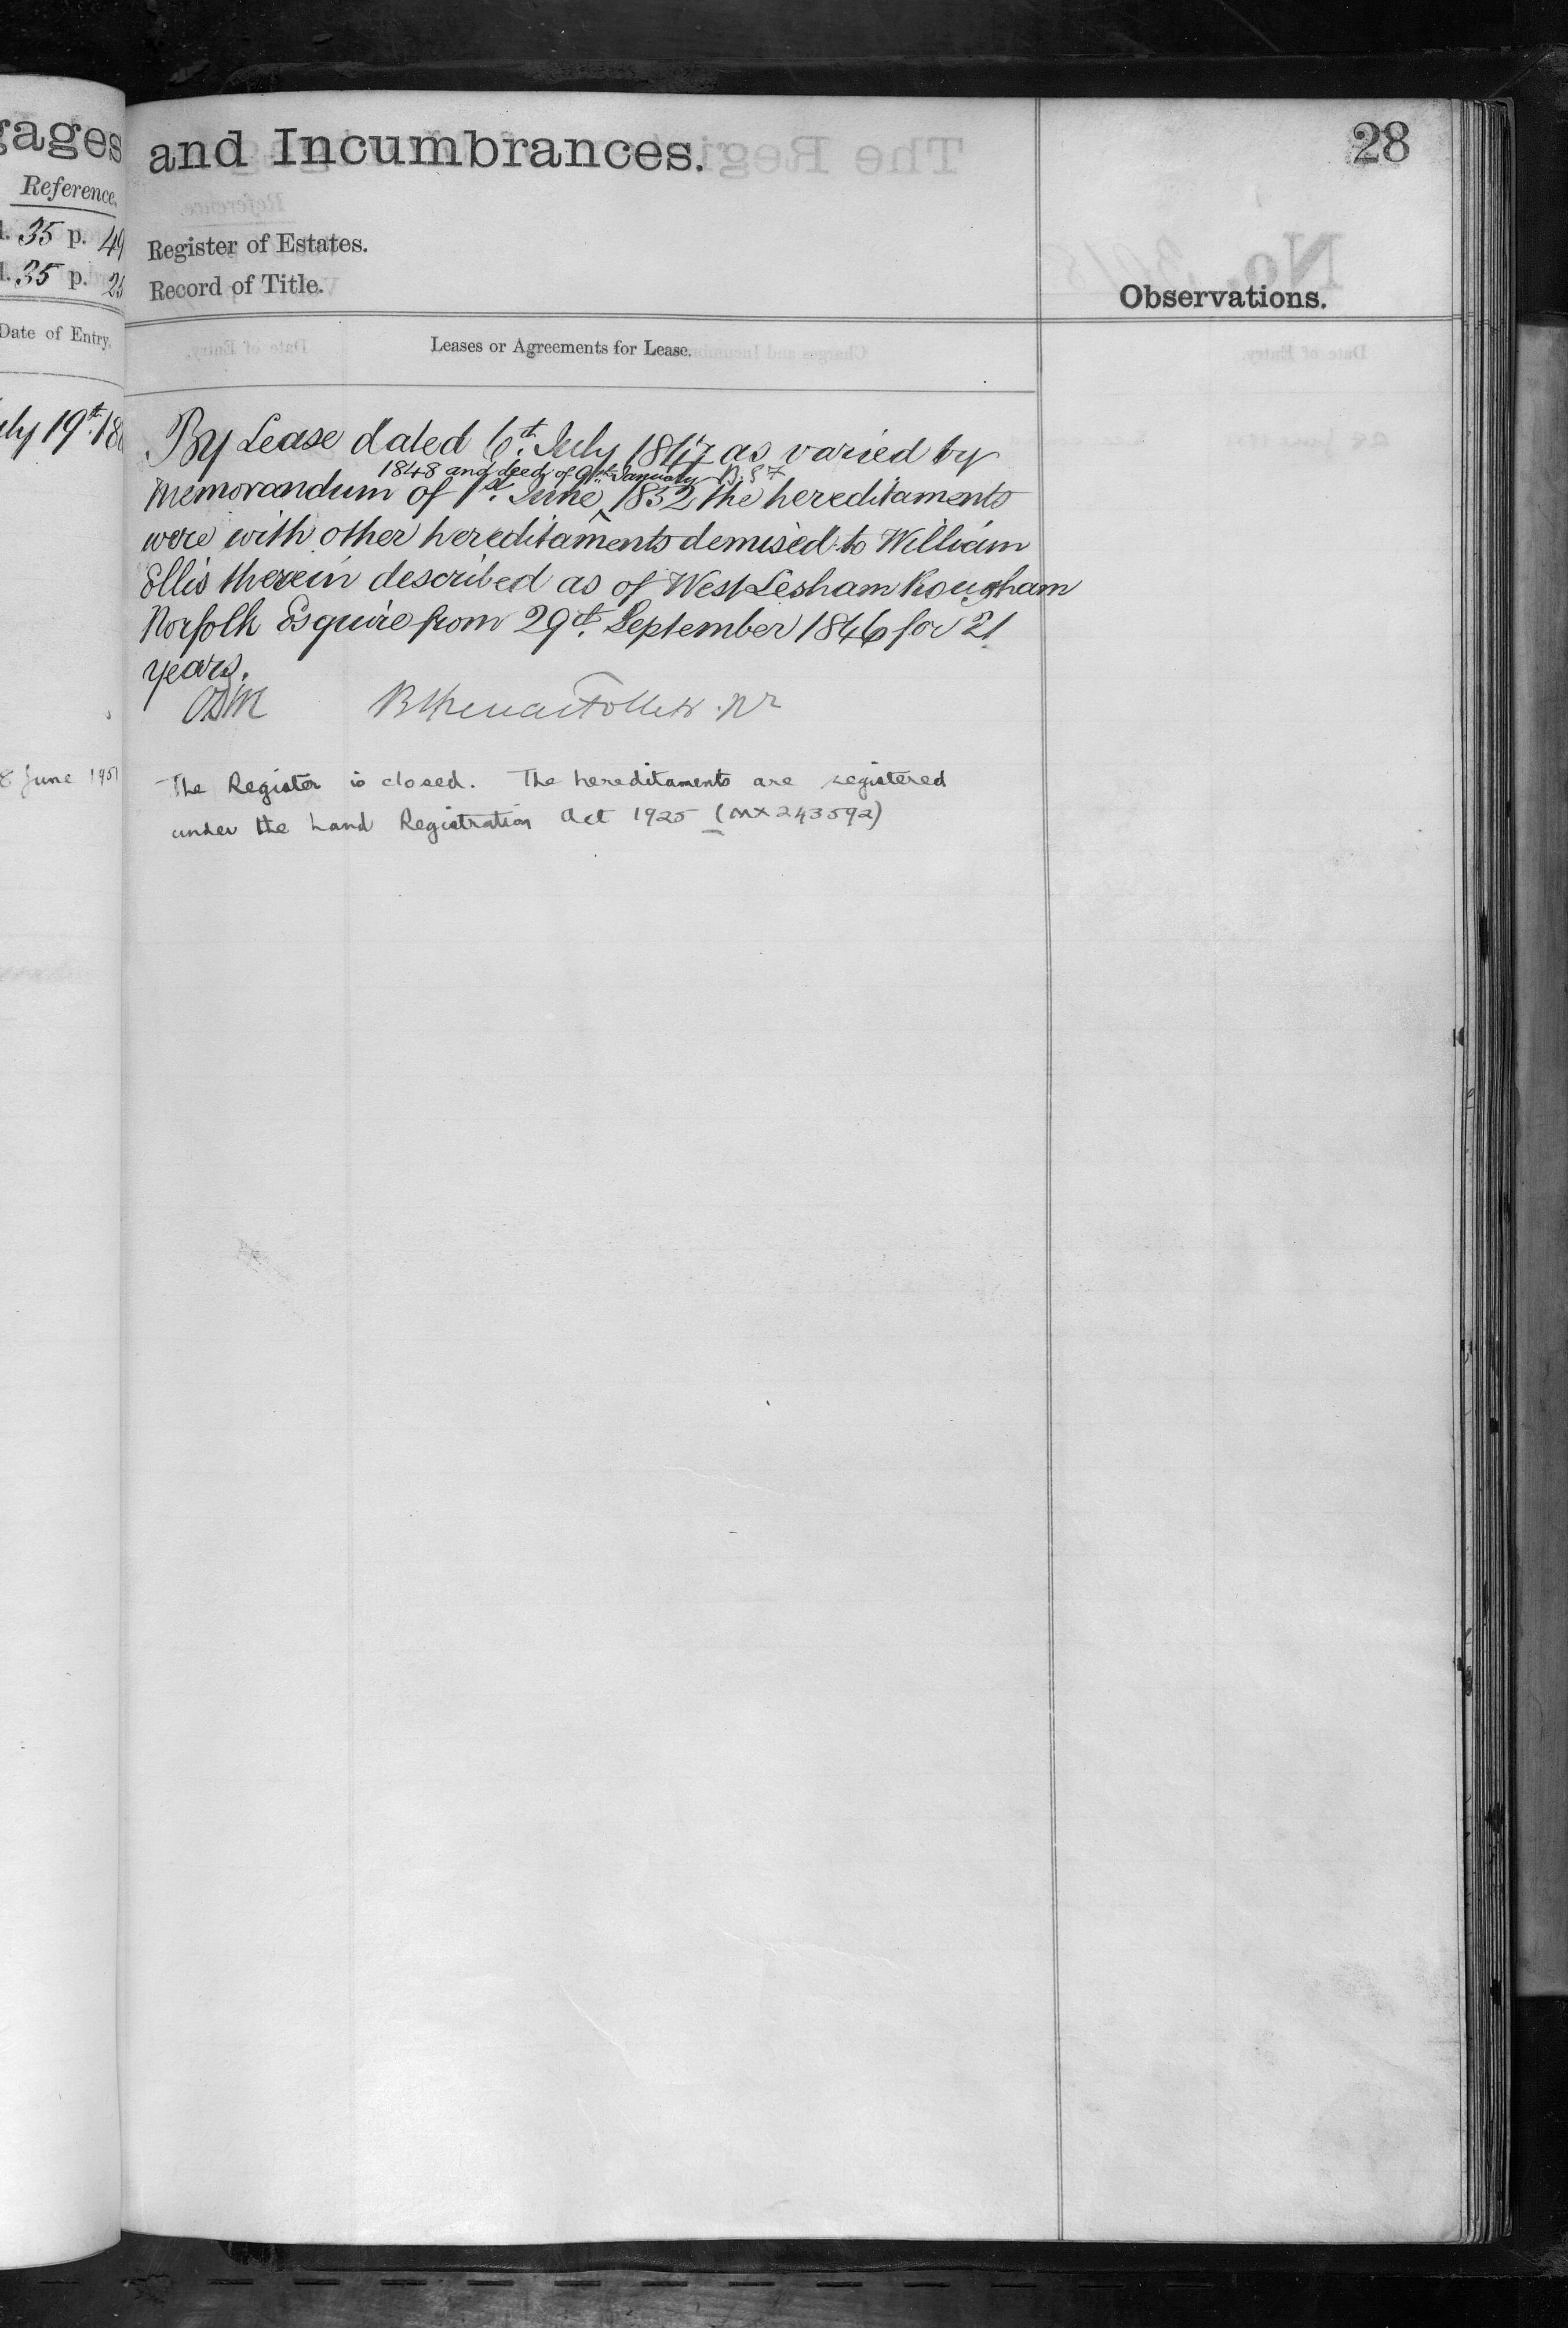 gages
Reference.
l. 35 p. 49
l. 35 p. 25
Date of Entry.
July 19th 18
8 June 1951
and Incumbrances.
28
Register of Estates.
Record of Title.
Observations.
Leases or Agreements for Lease.
By Lease dated 6th. July 1847 as varied by
1848 and deed of 9th January B.S.F
Memorandum of 1st. June ‸ 1852 the hereditaments
were with other hereditaments demised to William
Ellis therein described as of West Lesham Rougham
Norfolk Esquire from 29th. September 1846 for 21
years.
The Register is closed. The hereditaments are registered
under the Land Registration Act 1925 (MX243592)